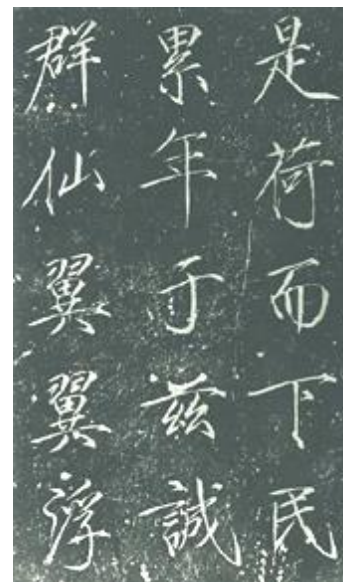 是荷而下民
累年于兹誠
群仙翼翼浮